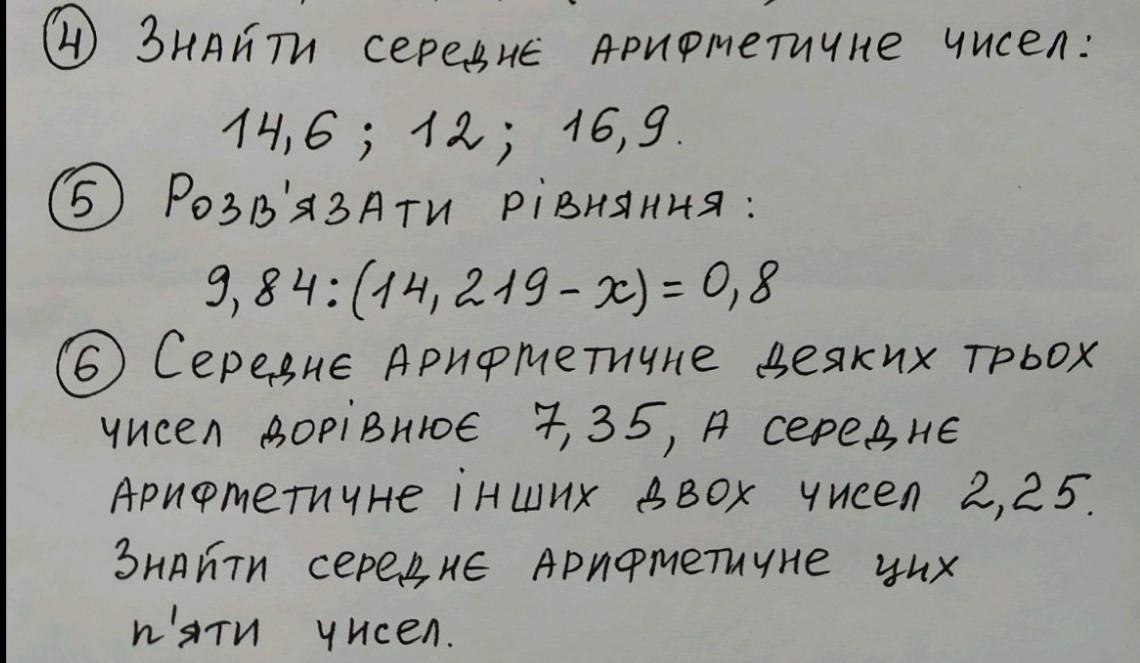 ④ Знайти середнє арифметичне чисел:
14,6; 12; 16,9.
⑤ Розв'язати рівняння:
9,84:(14,219-x)=0,8
⑥ Середнє арифметичне деяких трьох
чисел дорівнює 7,35, а середнє
арифметичне інших двох чисел 2,25.
Знайти середнє арифметичне цих
п'яти чисел.